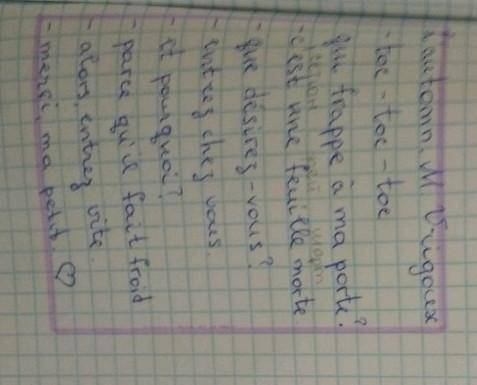 L'automn. M Vrigoux
- toc - toc - toc
qui frappe à ma porte?
- c'est une feuille morte.
- que désirez-vous?
- entrez chez vous.
- et pourquoi?
- parce qu'il fait froid
- alors, entrez vite.
- merci, ma petit ♡